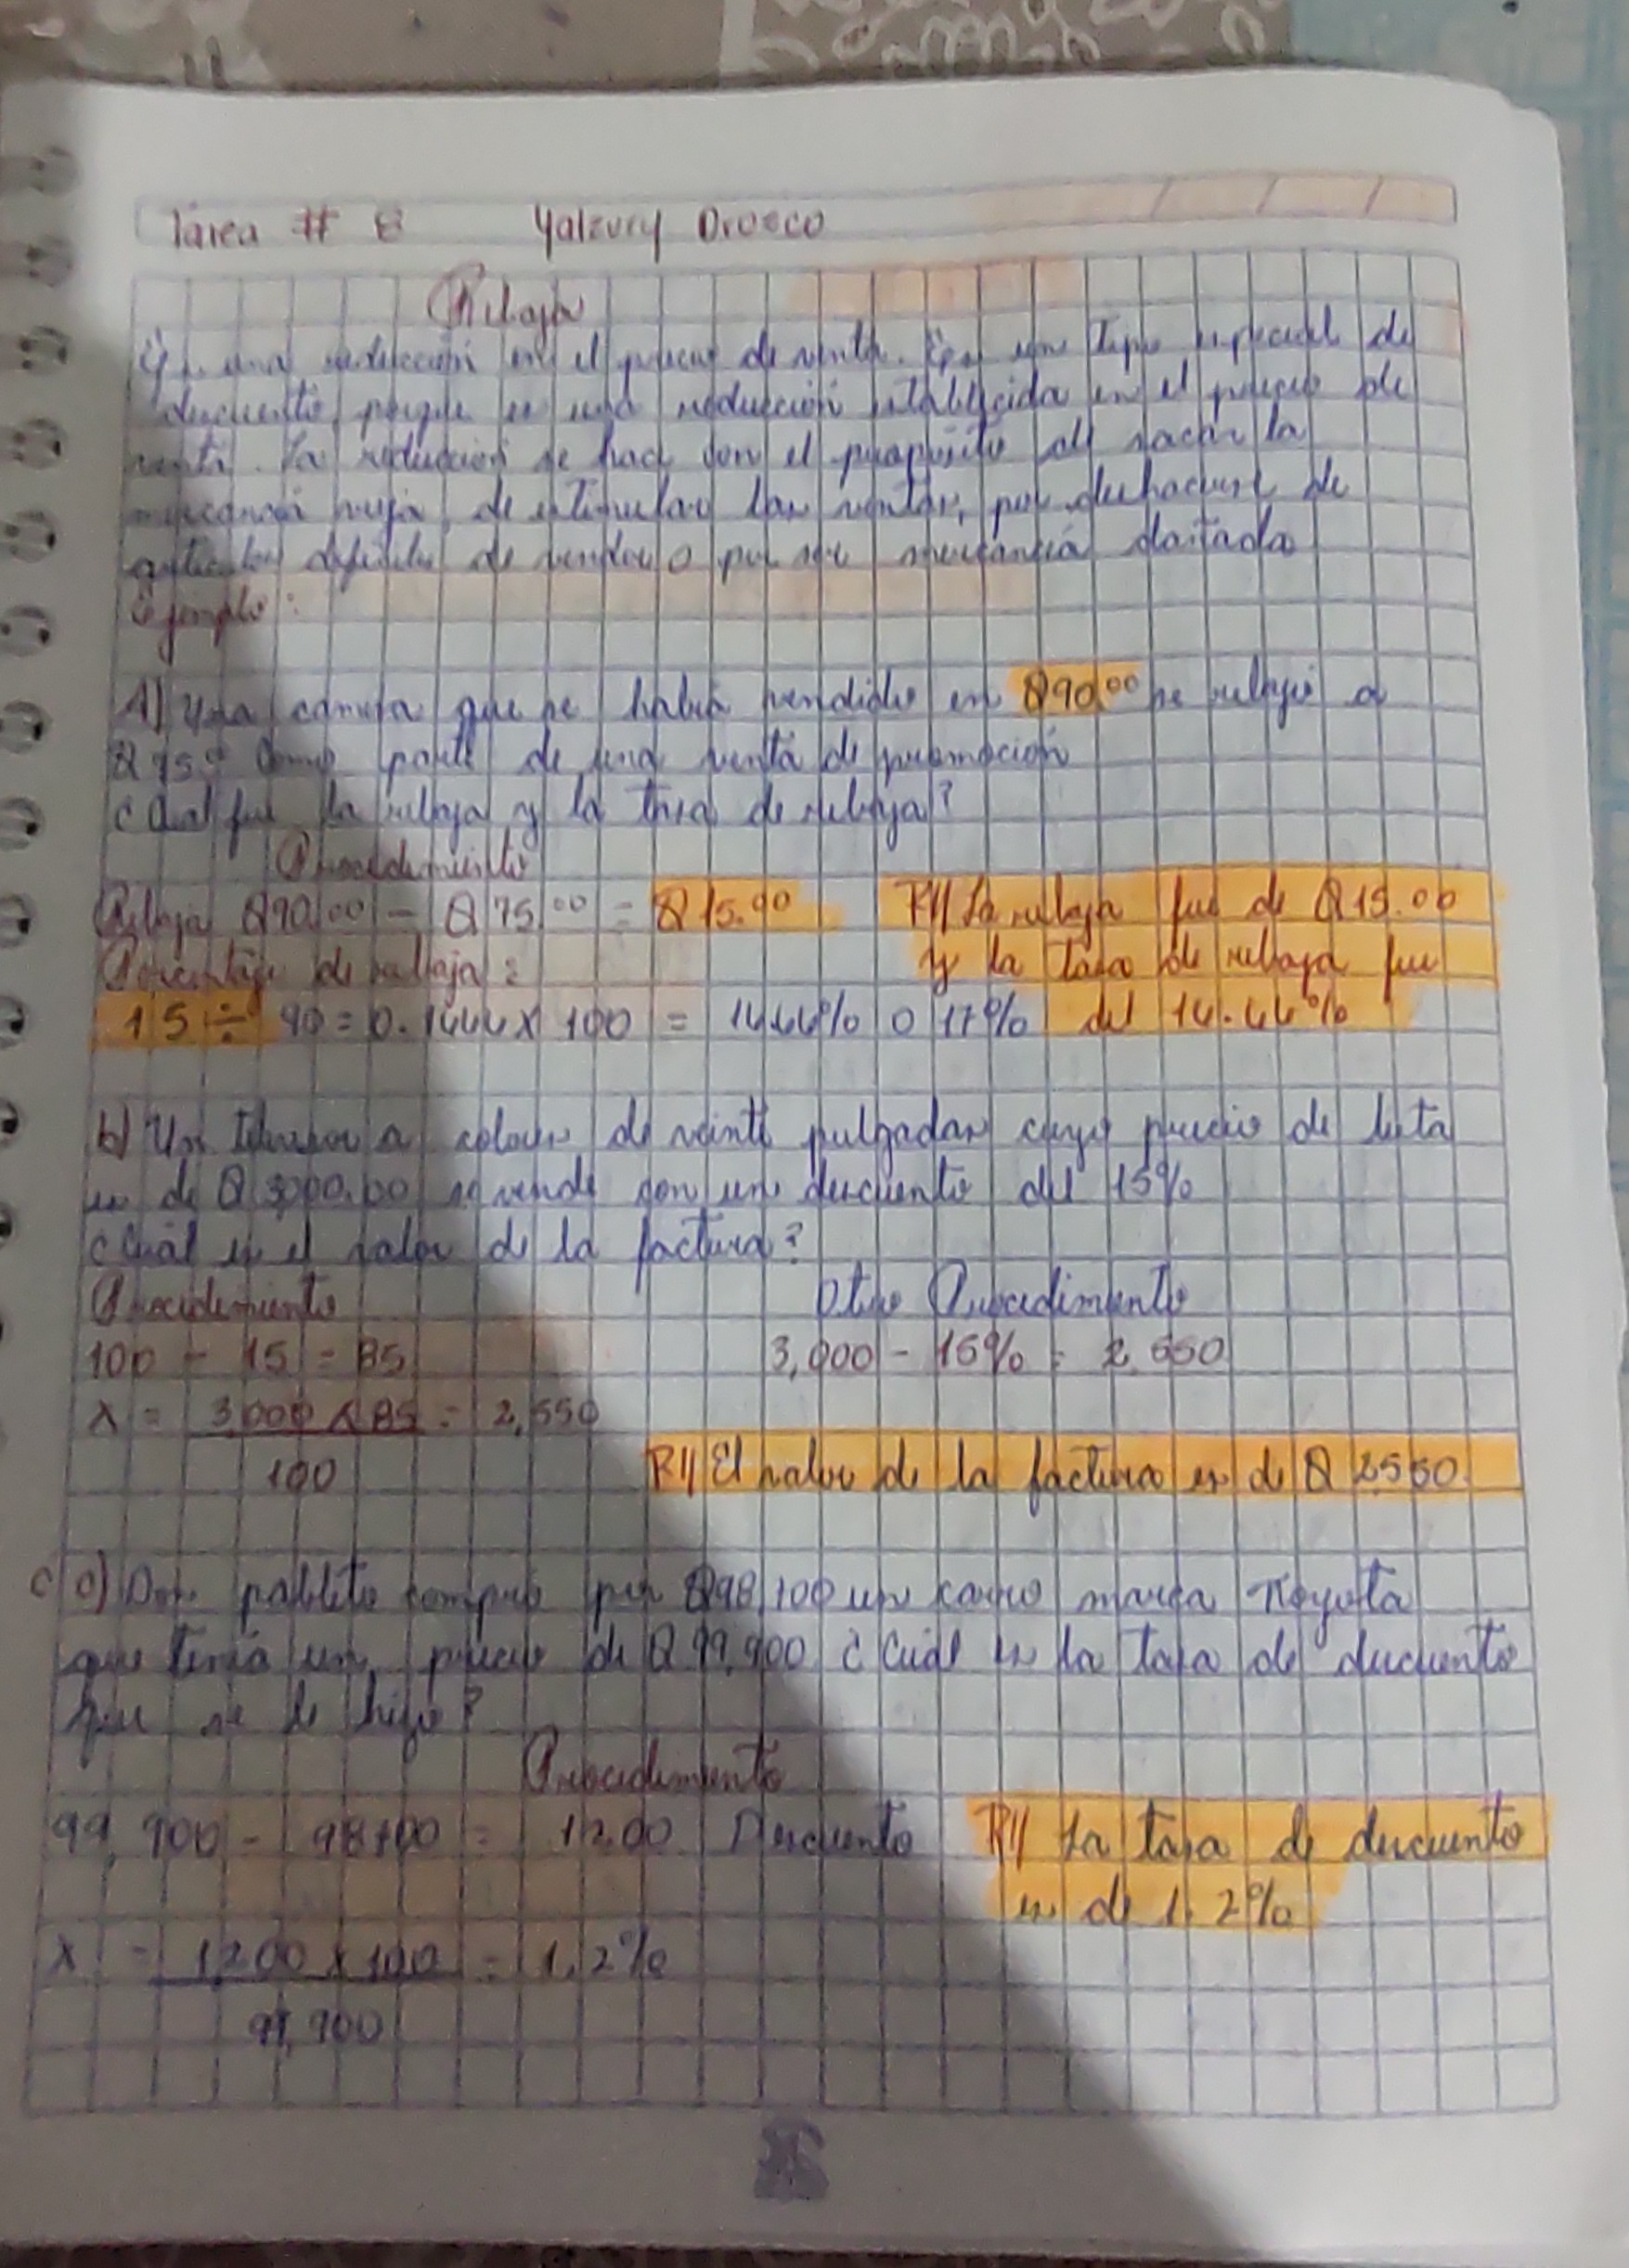 Tarea # 8 Yalzury Orozco
Rebaja
Es una reducción en el precio de venta. Es un tipo especial de
descuento, porque es una reducción establecida en el precio de
venta. La reducción se hace con el propósito de sacar la
mercancía vieja, de estimular las ventas, por deshacerse de
articulos dificiles de vender o por ser mercancía dañada
Ejemplo:
A) Una camisa que se habia vendido en Q90.00 se rebajo a
Q75.00 como parte de una venta de promoción
¿Cual fue la rebaja y la tasa de rebaja?
Procedimiento
Rebaja Q90.00 - Q75.00 = Q15.00 R// La rebaja fue de Q15.00
Porcentaje de rebaja: y la tasa de rebaja fue
15 ÷ 90 = 0.1444 x 100 = 14.44% o 17% del 14.44%
b) Un televisor a colores de veinte pulgadas cuyo precio de lista
es de Q3,000.00 se vende con un descuento del 15%
¿Cuál es el valor de la factura?
Procedimiento Otro Procedimiento
100 - 15 = 85 3,000 - 15% = 2,550
x = 3,000 x 85 = 2,550
100 R// El valor de la factura es de Q 2550.
c) Don pablito compro por Q98,100 un carro marca Toyota
que tenia un precio de Q99,900 ¿Cuál es la tasa de descuento
que se le hizo?
Procedimiento
99,900 - 98700 = 1200 Descuento R// La tasa de descuento
es de 1.2%
x = 1200 x 100 = 1.2%
99,900